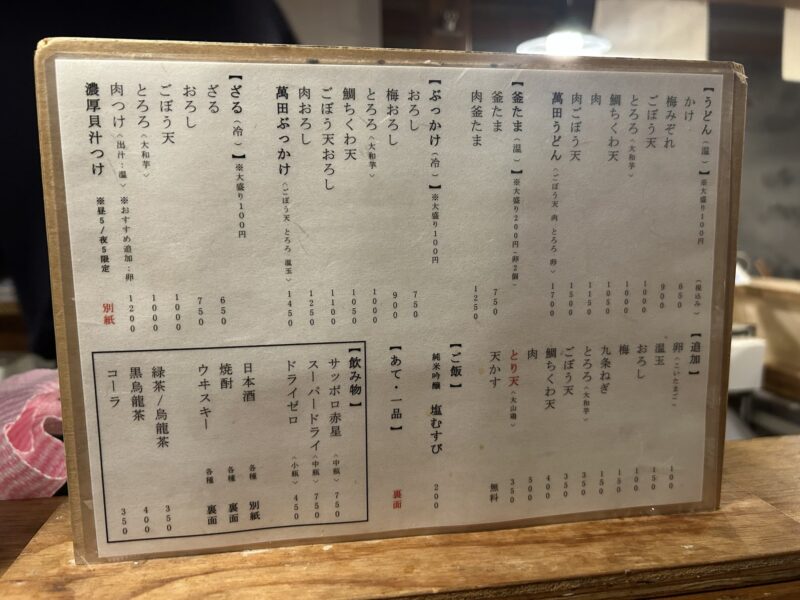 【うどん（温）】※大盛り100円 （税込み）
かけ 650
梅みぞれ 900
ごぼう天 1000
とろろ（大和芋） 1000
鯛ちくわ天 1050
肉 1150
肉ごぼう天 1500
萬田うどん（ごぼう天 肉 とろろ 卵） 1700
【釜たま（温）】※大盛り200円-卵2個
釜たま 750
肉釜たま 1250
【ぶっかけ（冷）】※大盛り100円
おろし 750
梅おろし 900
とろろ（大和芋） 1000
鯛ちくわ天 1050
ごぼう天おろし 1100
肉おろし 1250
萬田ぶっかけ（ごぼう天 とろろ 温玉） 1450
【ざる（冷）】※大盛り100円
ざる 650
おろし 750
ごぼう天 1000
とろろ（大和芋） 1000
肉つけ（出汁：温）※おすすめ追加：卵 1200
濃厚貝汁つけ ※昼5/夜5限定 別紙
【追加】
卵（こいたまご） 100
温玉 150
おろし 100
梅 150
九条ねぎ 150
とろろ（大和芋） 350
ごぼう天 350
鯛ちくわ天 400
肉 500
とり天（大山鶏） 350
天かす 無料
【ご飯】
純米吟醸 塩むすび 200
【あて・一品】 裏面
【飲み物】
サッポロ赤星（中瓶） 750
スーパードライ（中瓶） 750
ドライゼロ（小瓶） 450
日本酒 各種 別紙
焼酎 各種 裏面
ウヰスキー 各種 裏面
緑茶/烏龍茶 350
黒烏龍茶 400
コーラ 350